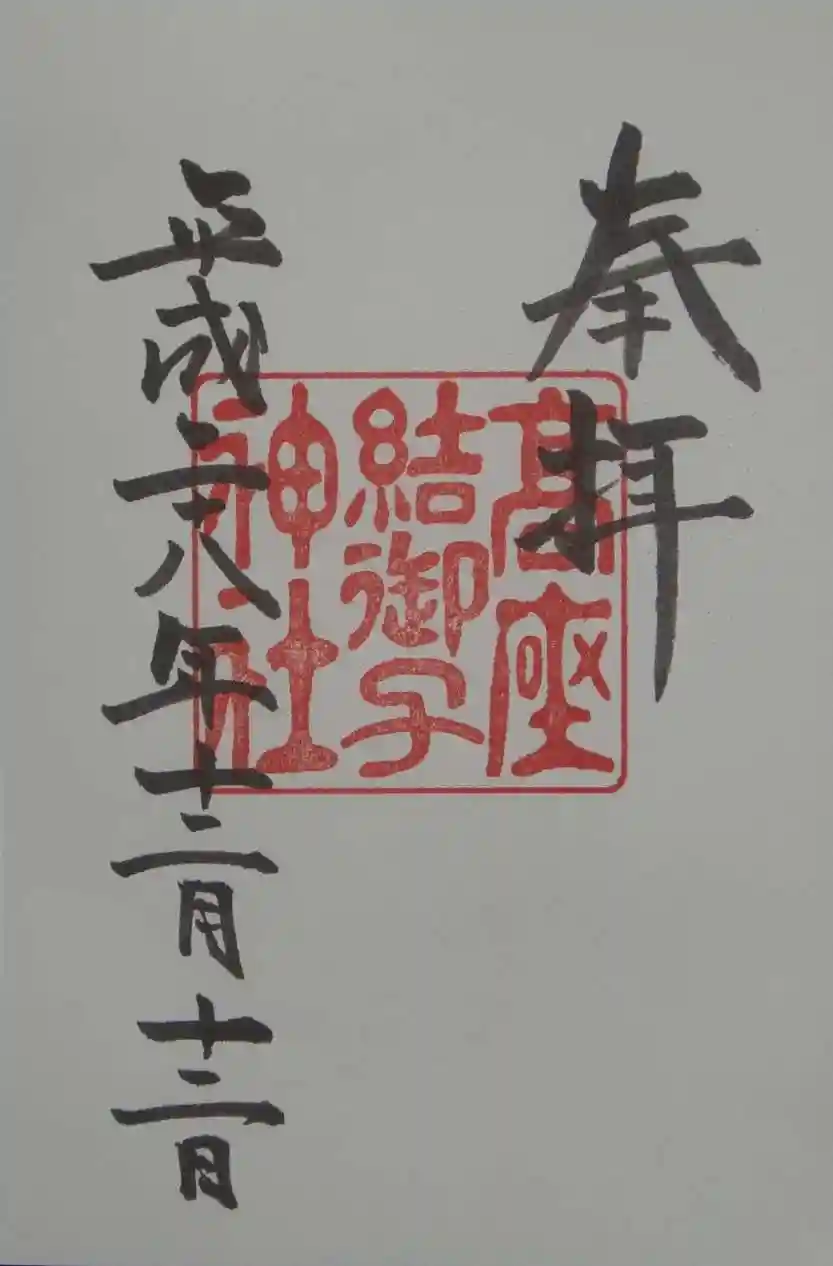 奉拝
高座
結御子
神社
平成二十八年十二月十二日